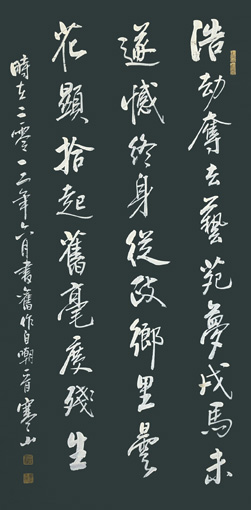 浩劫奪去藝苑夢戎馬未
遂憾終身從政鄉里曇
花顯拾起舊毫度殘生
時在二零一三年六月書舊作自嘲一首寒山